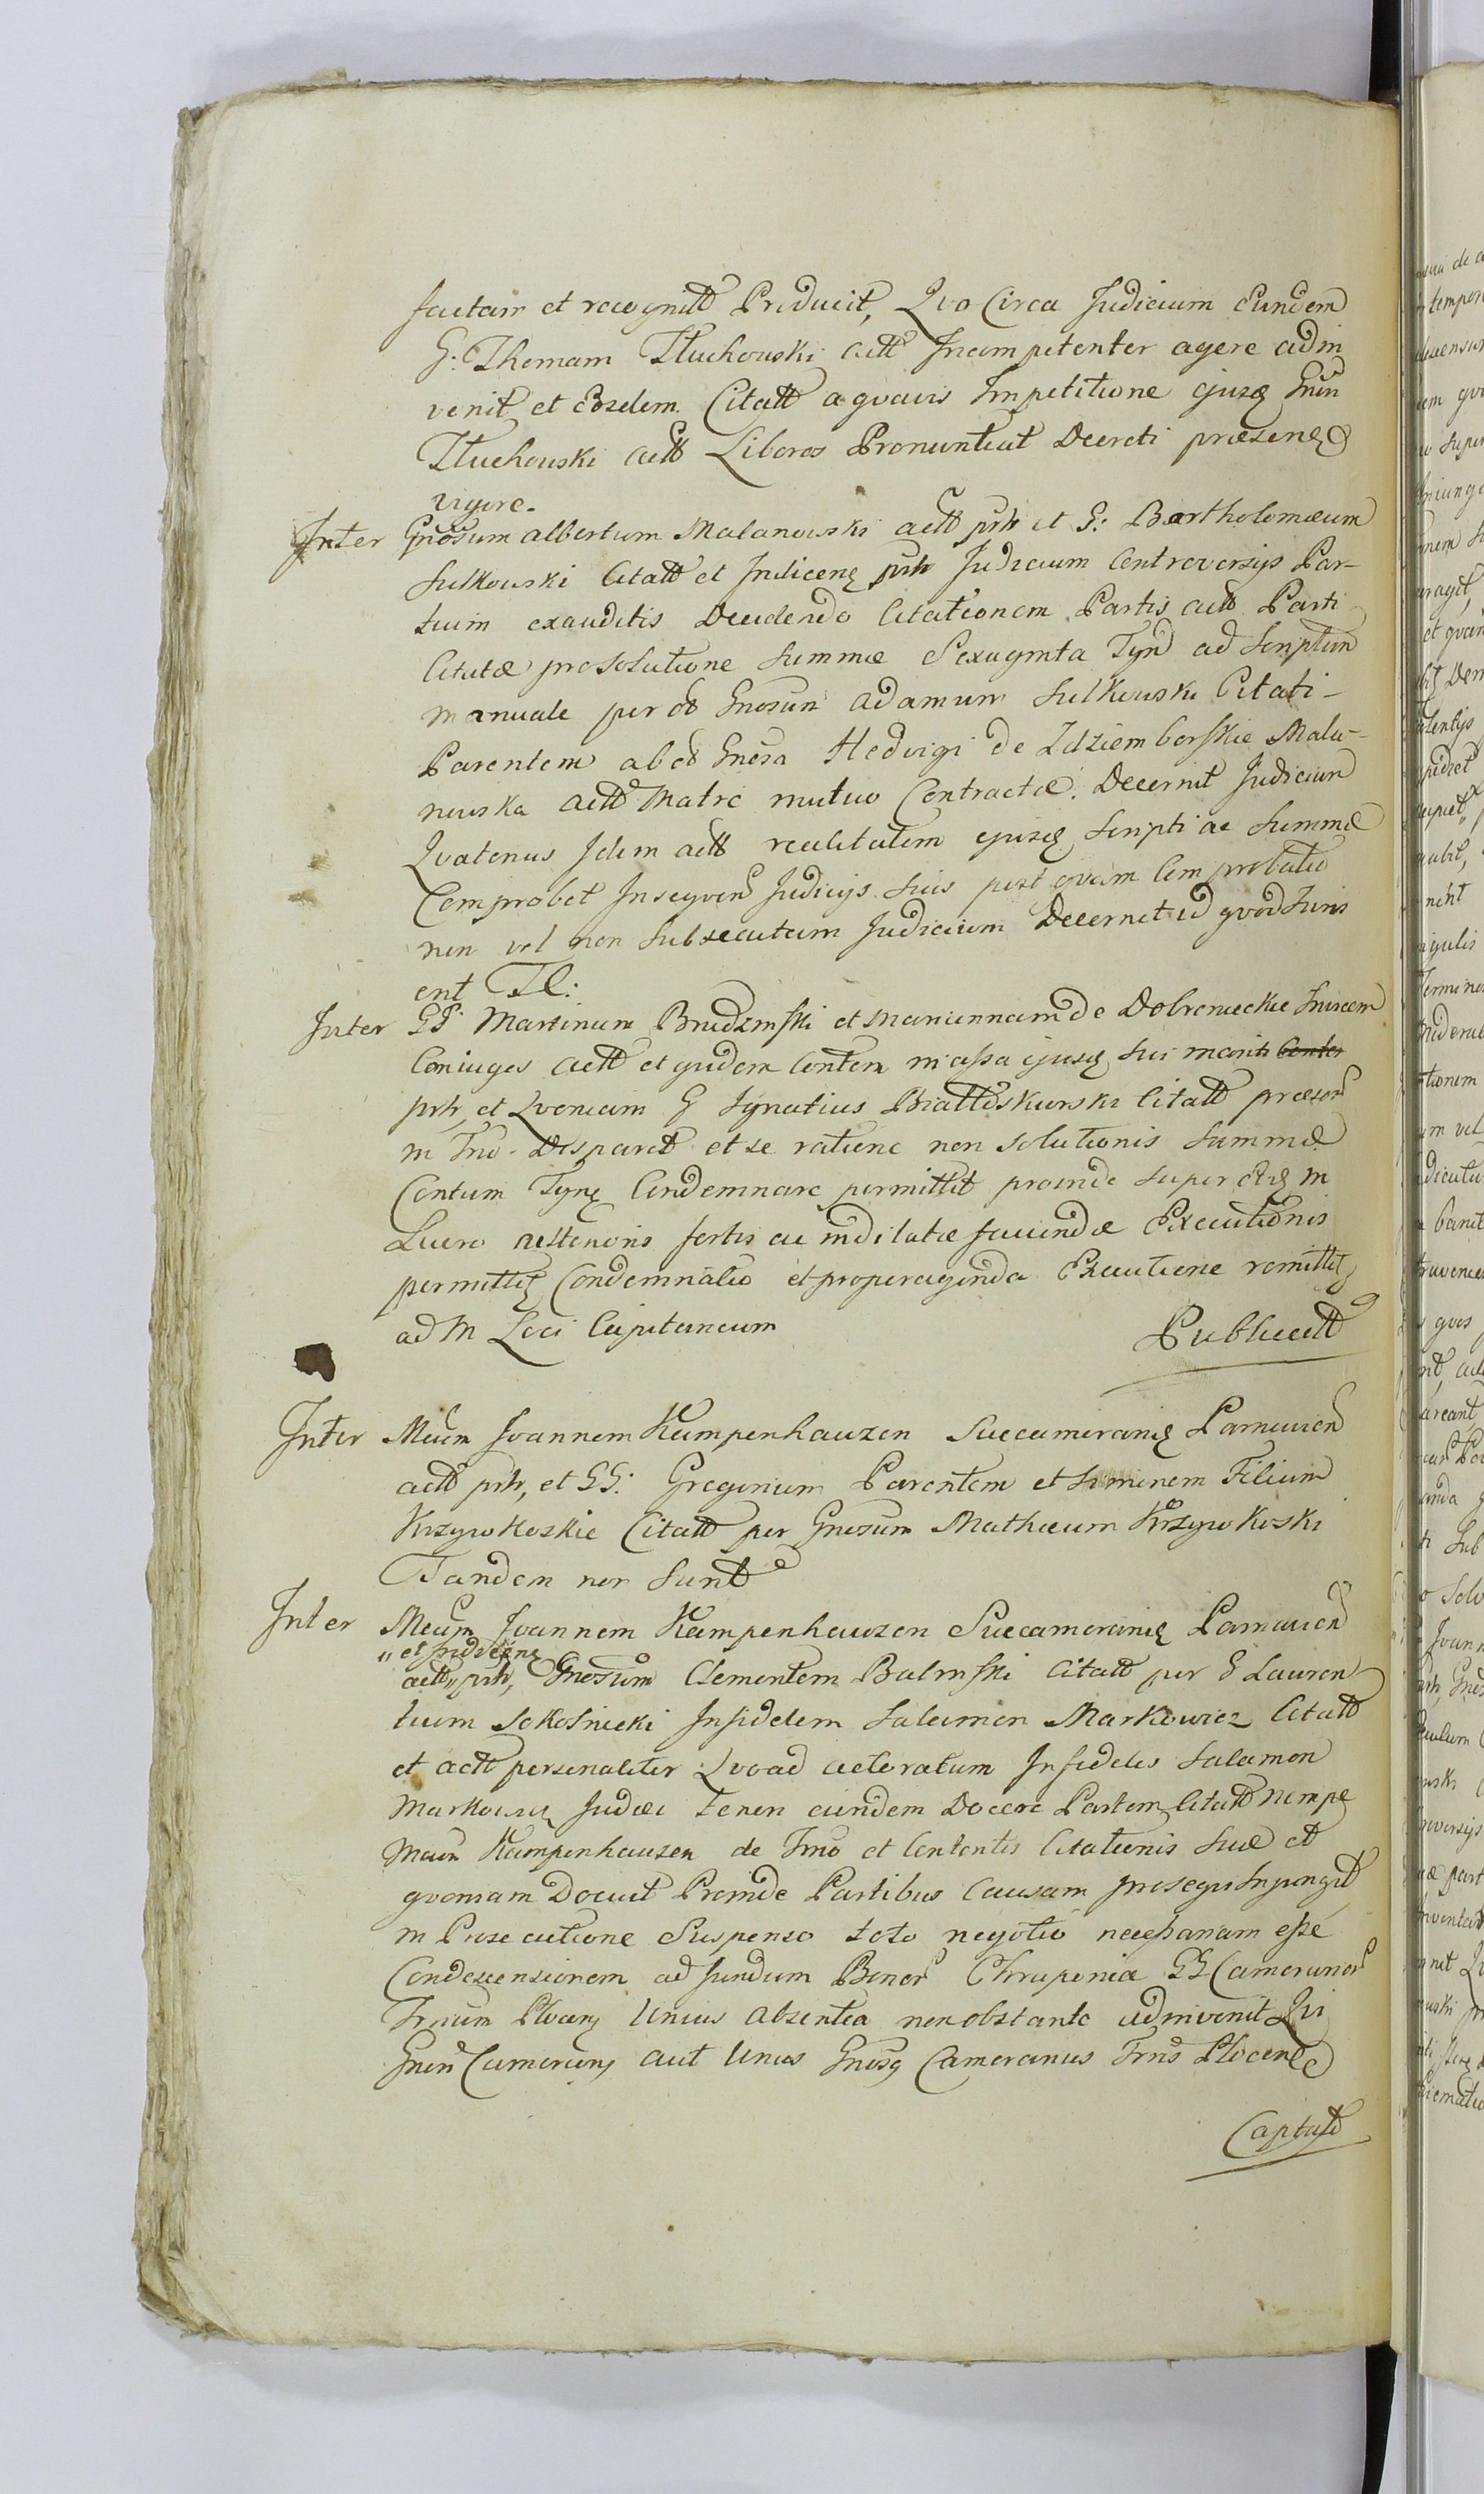 factam et recognitt Producit, Qvo Circa Judicium Eundem
G: Thomam Tłuchowski actt Incompetenter agere adin
venit et Eosdem Citatt a qvavis Impetitione ejusq Gnin
Tłuchowski actt Liberos Pronuntiat Decreti præsenq
vigore.
Inter Gnosum Albertum Malanowski actt prh et G: Bartholomæum
Sulkowski Citatt et Indicenq prh Judicium Controversijs Par-
tium exauditis Decidendo Citationem Partis actt Parti
Citatæ pro Solutione Summæ Sexaginta Tyn ad Scriptum
manuale per Gnosum Adamum Sulkowski Citati
Parentem ab Gnosa Hedvigi de Zdziemborskie Mala-
nowska actt Matre mutuo Contractæ. Decernit Judicium
Qvatenus Idem actt realitatem ejusq Scripti ac Summæ
Comprobet In seqven Judicijs Suis post qvam Comprobatio
nem vel non Subsecutam Judicium Decernet id qvod Juris
erit TC:
Inter GG Martinum Brudzinski et Mariannam de Dobronieckie Invicem
Coniuges actt et qvidem Contem in assa ejusq Sui mariti
prh, et Qvoniam G Ignatius Białłoskurski Citatt præsen
in Tno Disparet et se ratione non Solutionis Summæ
Centum Tynq Condemnare permittit proinde Super in
Lucro restenoris Sortis ac indilatæ faciendæ Executionis
permittiq Condemnatio et pro peragenda Executione remittitq
ad M Loci Capitaneum Publicatt
Inter Mcum Joannem Kampenhauzen Succameranq Parnavien
actt prh, et GG: Gregorium Parentem et Filium
Krzywkoskie Citatt per Gnosum Mathæum Krzywkoski
Tandem non Sunt
Inter Mcum Joannem Kampenhauzen Succameranq Parnavien
"et
actt" prh, Gnosum Clementem Balinski Citatt per G Lauren
tium Sokolnicki Infidelem Salamon Markowicz Citatt
et actt personaliter Qvoad acteratum Infidelis Salamon
Markowicz Judæi Tenen eundem Docere Partem Citatt nempe
Mcum Kampenhauzen de Tno et Contentis Citationis Suæ et
qvoniam Docuit Proinde Partibus Causam proseqvi Injungit
in Prosecutione Suspenso toto negotio necessariam esse
Condescensionem ad fundum Bonor Chraponia GG Cameranor
Trrum Plocen Unius absentia non obstante adinvenit Qvi
Gnin Cameran aut Unus Gnosq Cameranus Trris Plocen
Captatt